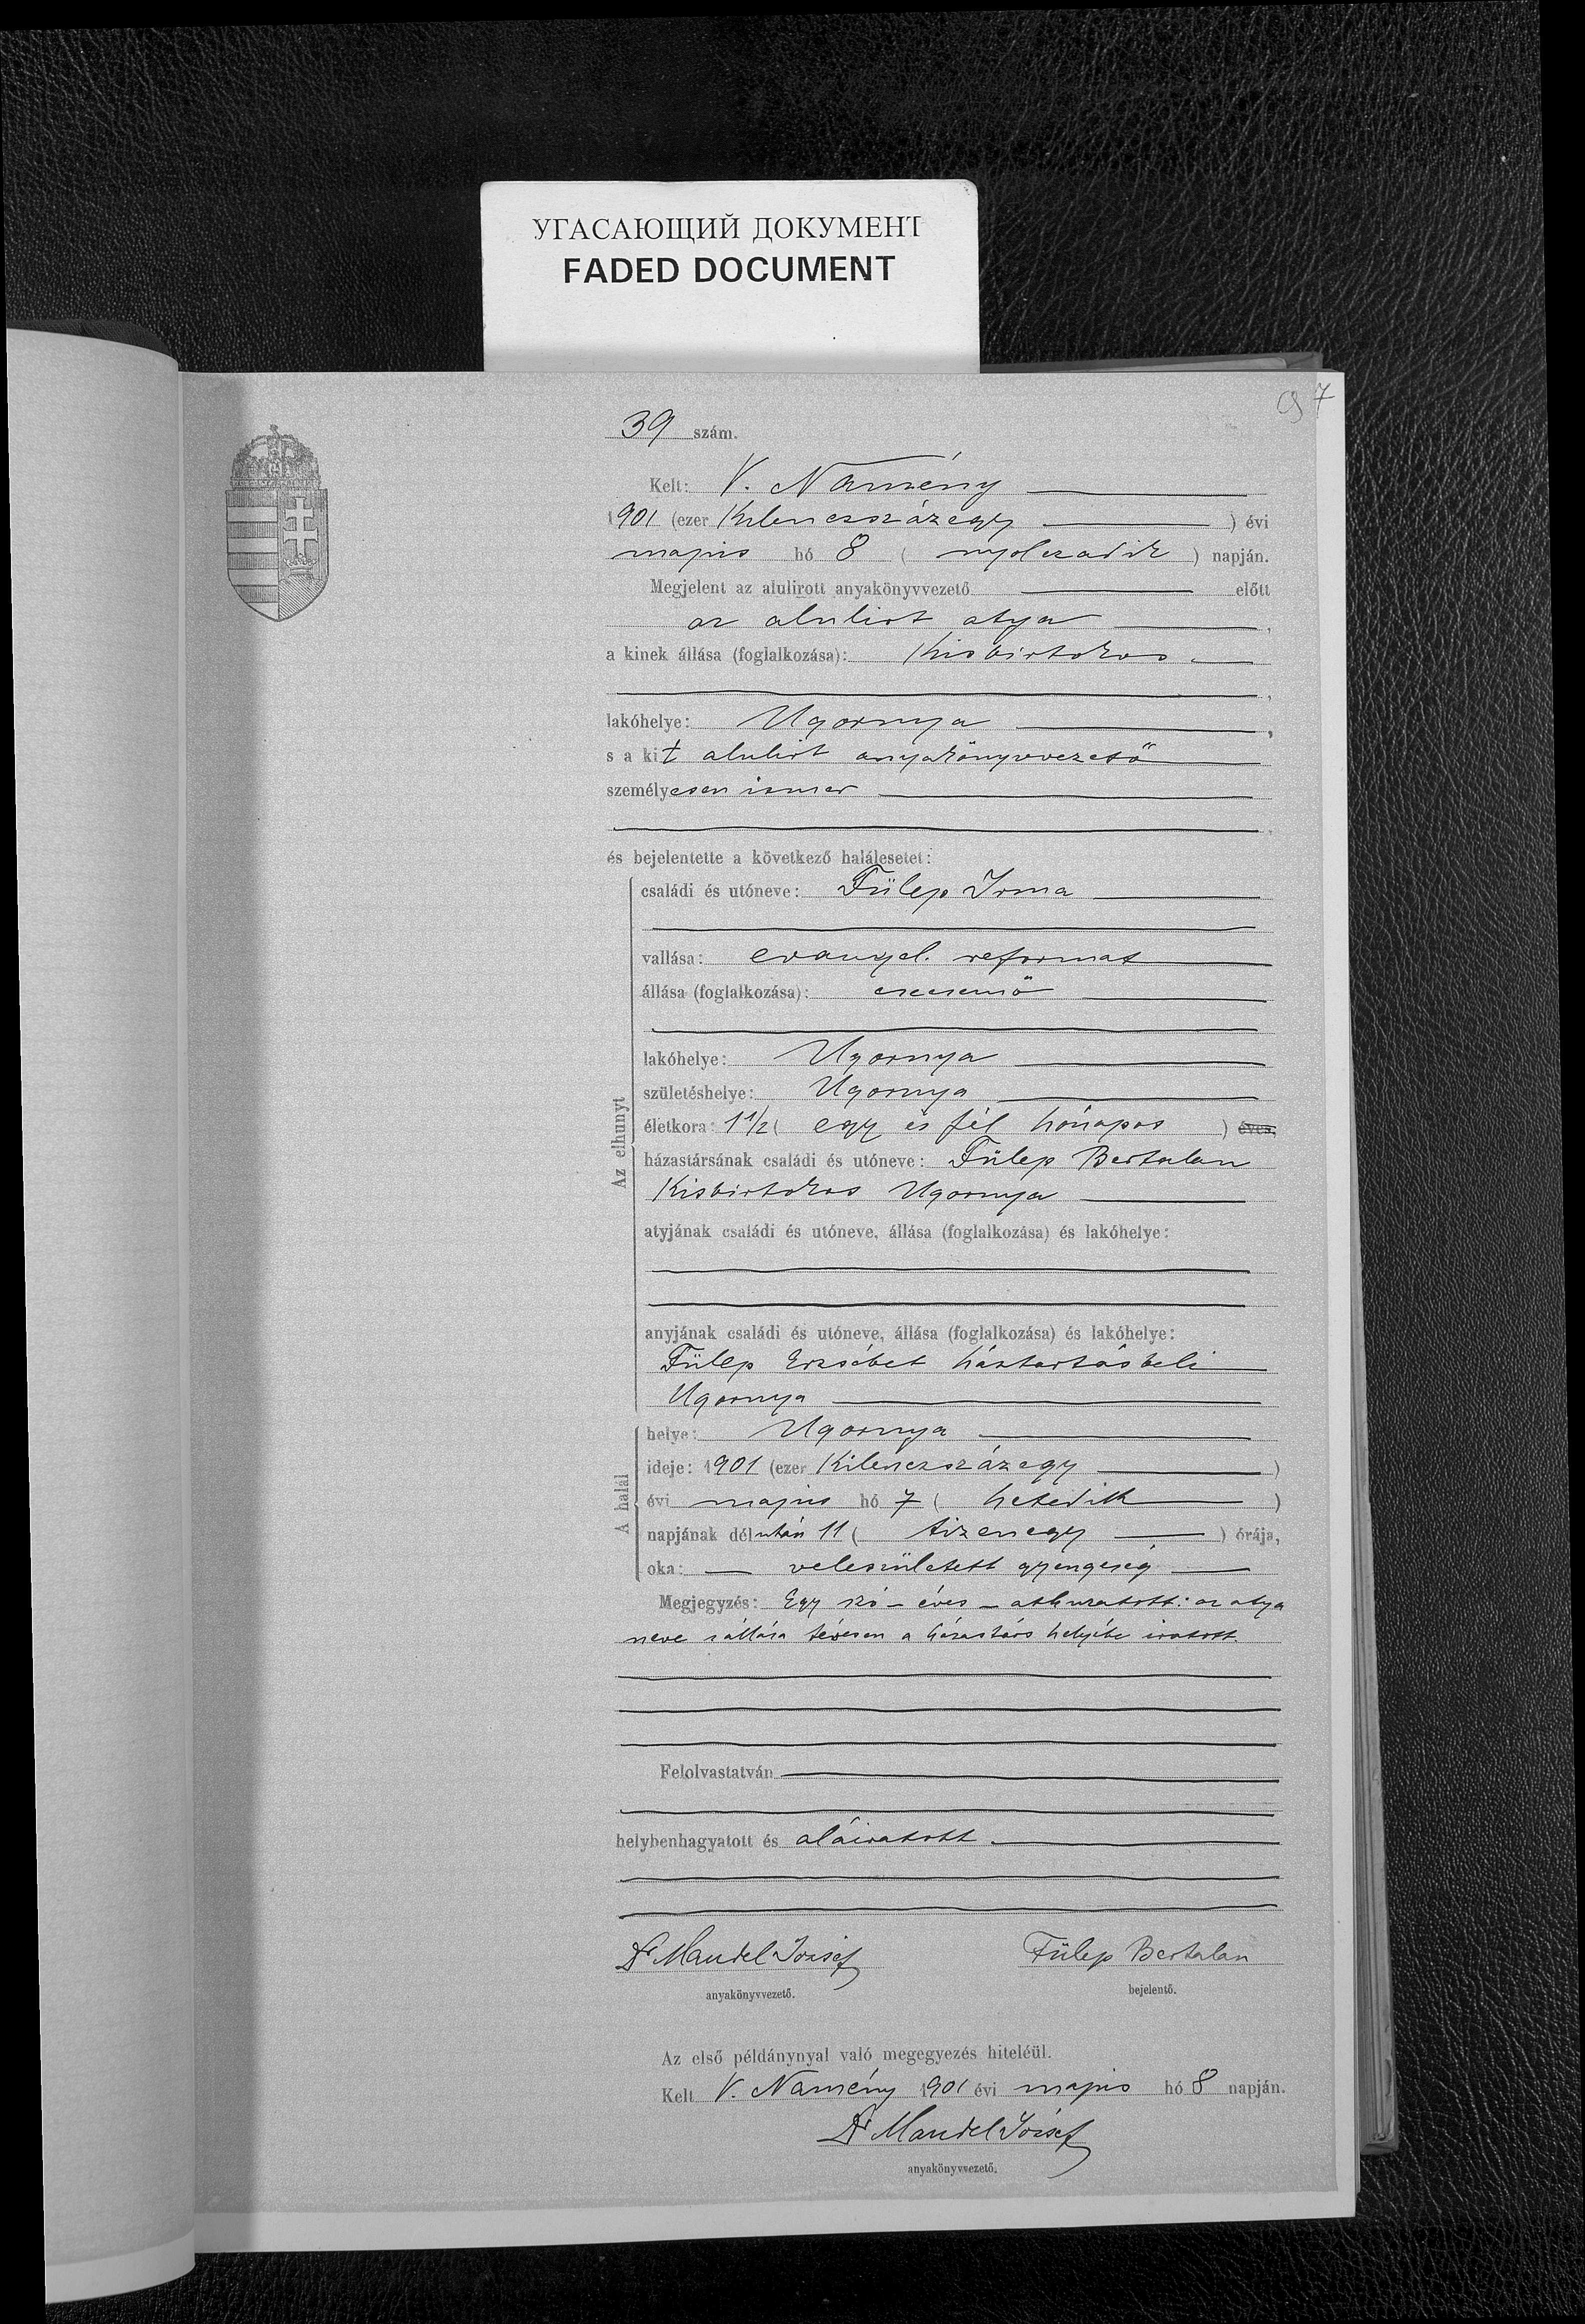 УГАСАЮЩИЙ ДОКУМЕНТ
FADED DOCUMENT
39 szám.
Kelt: V. Namény
1901 (ezer Kilenczszázegy ) évi
majus hó 8 ( nyolczadik ) napján.
Megjelent az alulirott anyakönyvvezető előtt
az alulirt atya ,
a kinek állása (foglalkozása): Kisbirtokos
,
lakóhelye: Ugornya ,
s a kit alulirt anyakönyvvezető
személyesen ismer
,
és bejelentette a következő halálesetet:
Az elhunyt
családi és utóneve: Fülep Irma
vallása: evangel. reformat
állása (foglalkozása): csecsemő
lakóhelye: Ugornya
születéshelye: Ugornya
életkora: 1 1/2 ( egy és fél hónapos ) éves,
házastársának családi és utóneve: Fülep Bertalan
Kisbirtokos Ugornya
atyjának családi és utóneve, állása (foglalkozása) és lakóhelye:
anyjának családi és utóneve, állása (foglalkozása) és lakóhelye:
Fülep Erzsébet háztartásbeli
Ugornya
A halál
helye: Ugornya
ideje: 1901 (ezer Kilenczszázegy )
évi majus hó 7 ( hetedik )
napjának délután 11 ( tizenegy ) órája,
oka: — veleszületett gyengeség —
Megjegyzés: Egy szó – éves – athuzatott: az atya
neve s állása tévesen a házastárs helyébe iratott.
Felolvastatván
helybenhagyatott és aláiratott
Dr Mandel József
Fülep Bertalan
anyakönyvvezető.
bejelentő.
Az első példánynyal való megegyezés hiteléül.
Kelt V. Namény 1901 évi majus hó 8 napján.
Dr Mandel József
anyakönyvvezető.